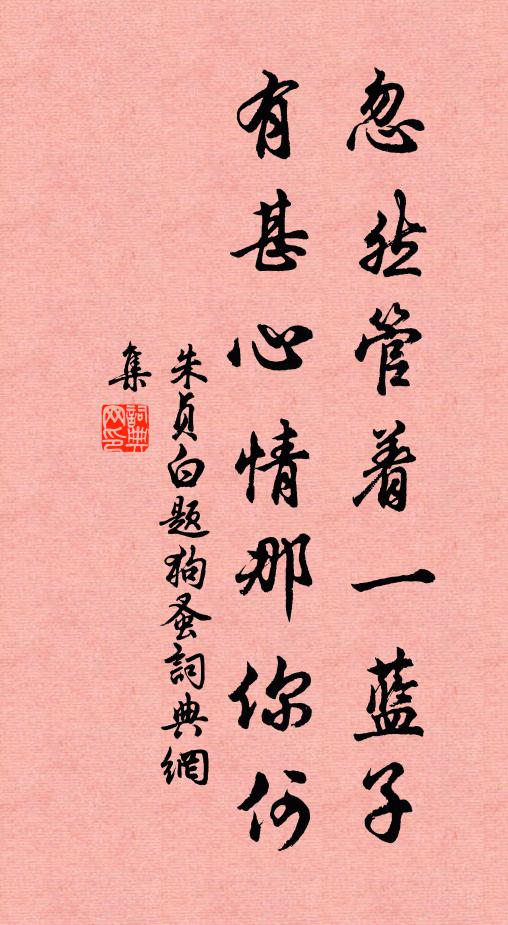 忽然管着一蓝子
有甚心情那你何
朱贞白题狗蚤詞典網
集
詞典网印